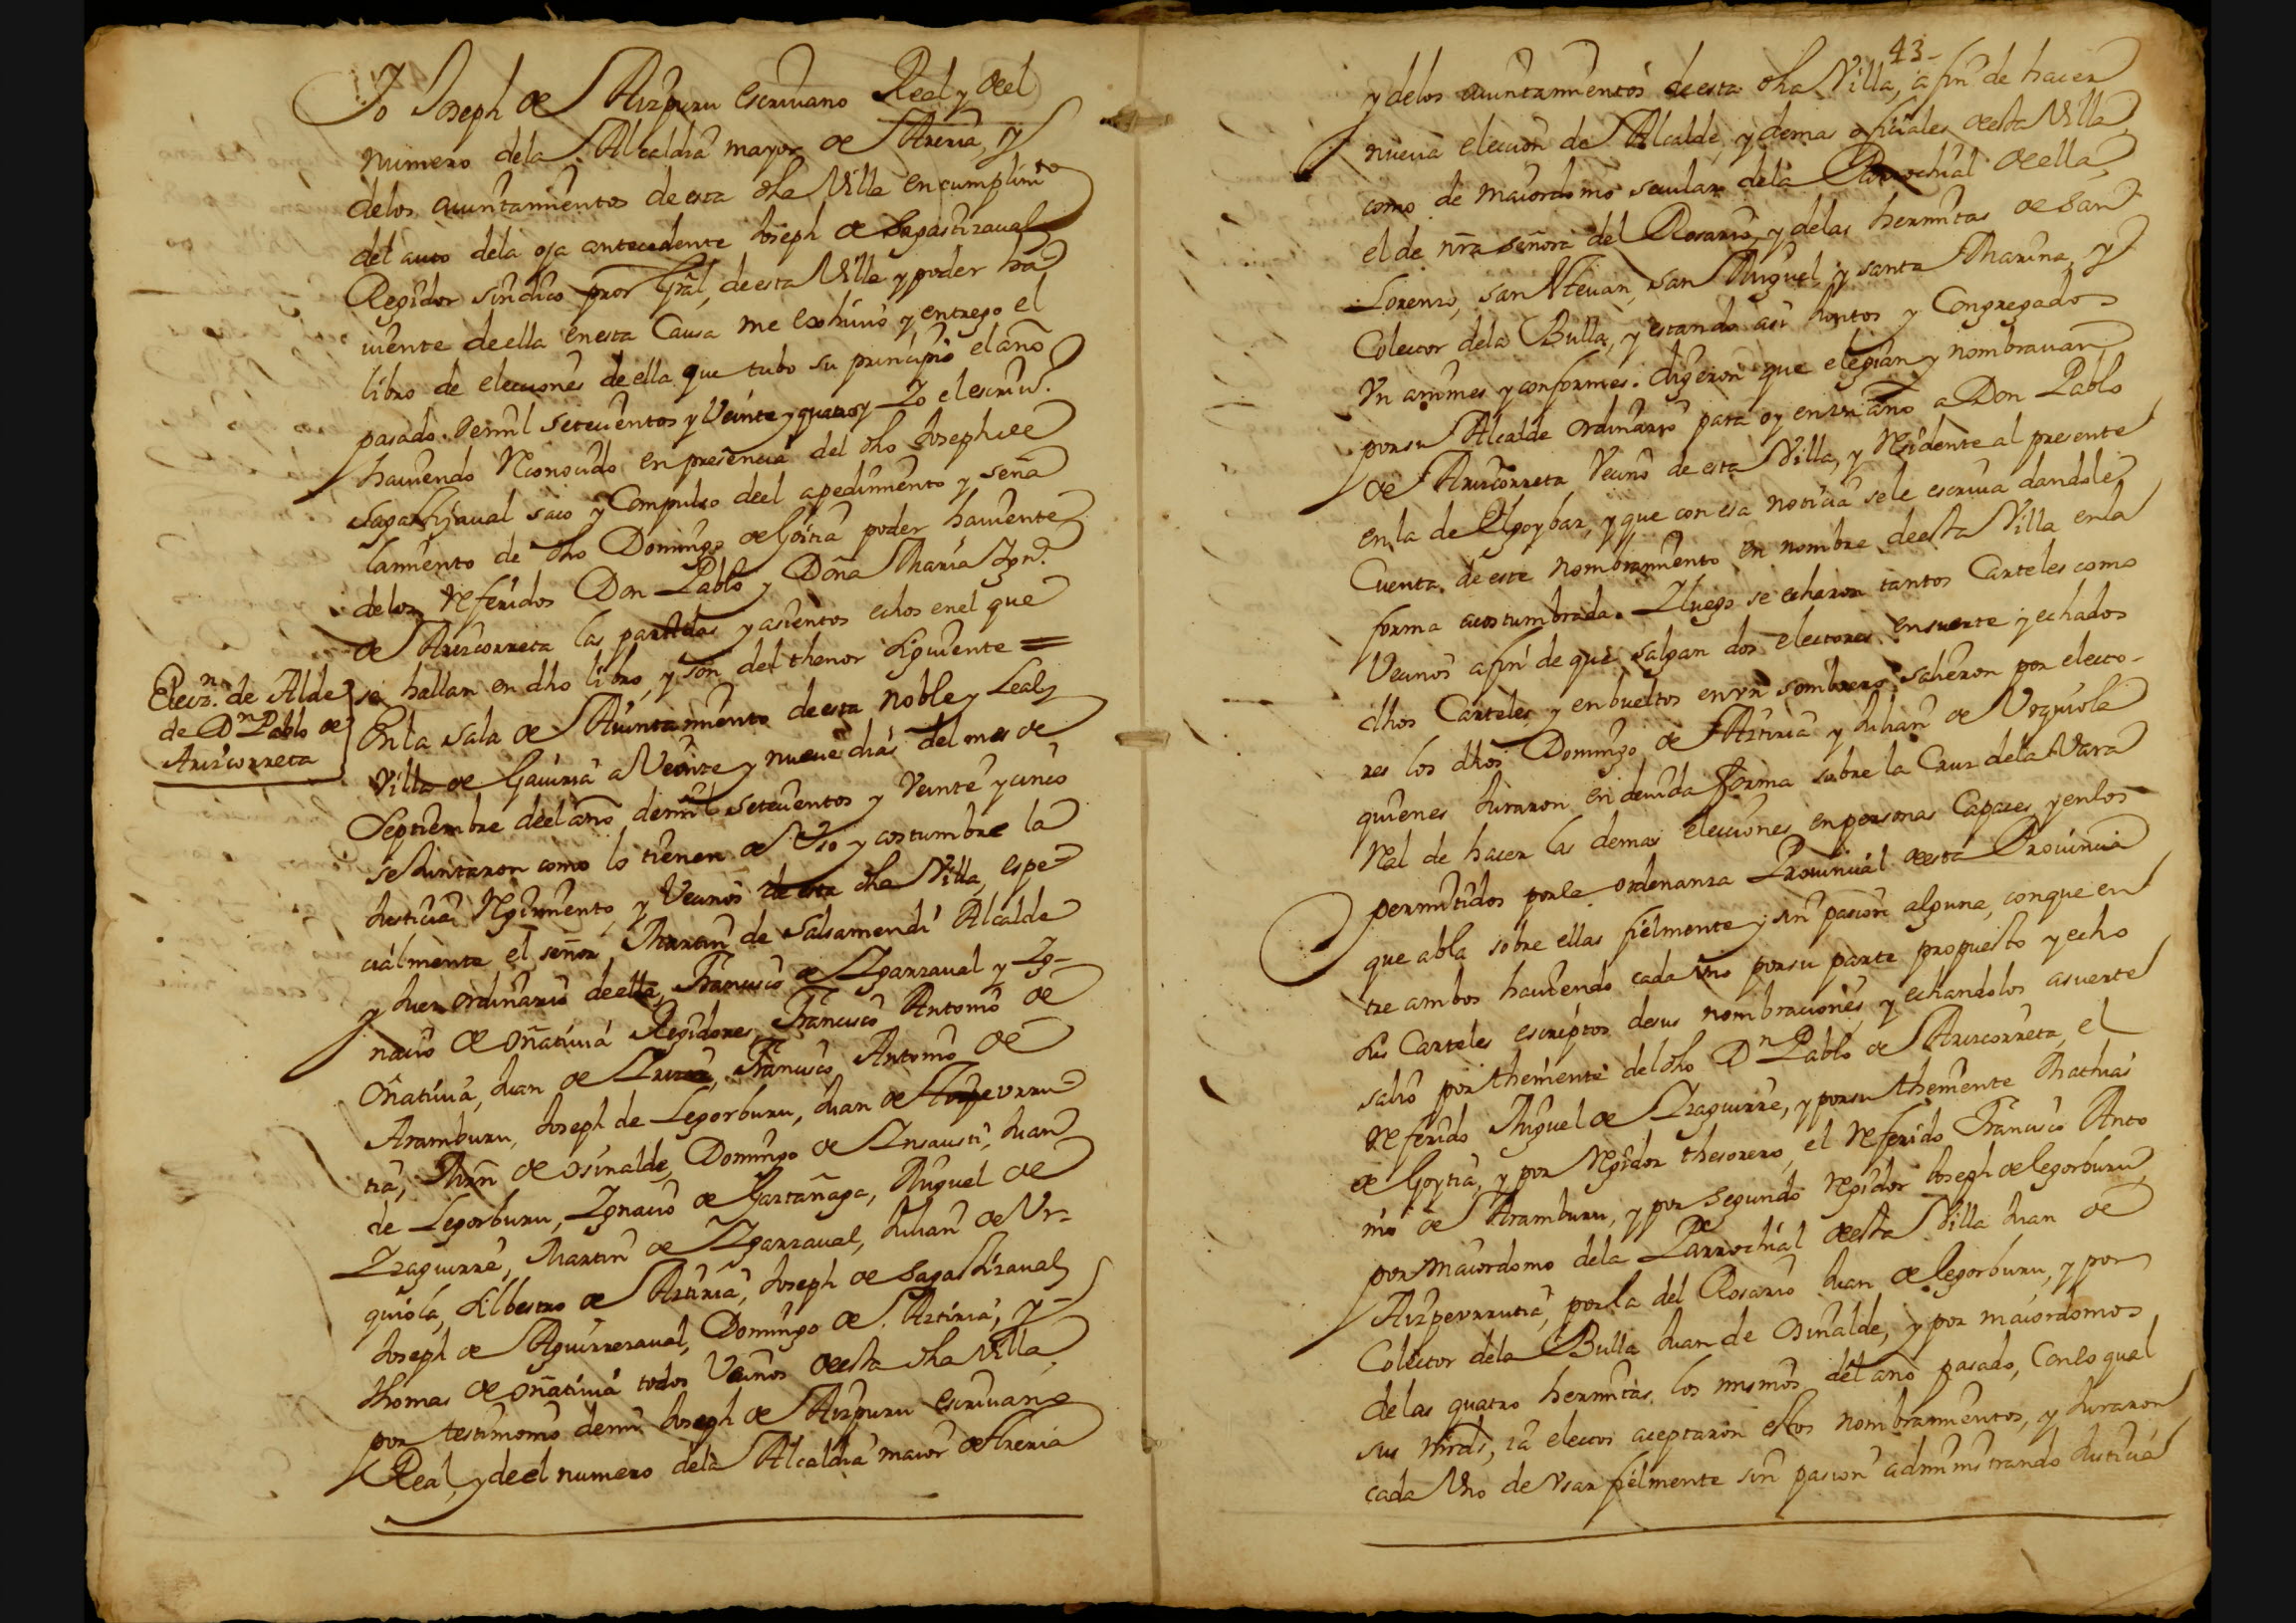 Yo Joseph de Aizpuru escriuano Real y deel
numero dela Alcaldia mayor de Areria, y
delos aiuntamientos de esta dha Villa en cumplimto
del auto dela oja antecedente Joseph de Sagastizaual
Regidor sindico pror Gral, de esta Villa y poder ha
uiente de ella en esta Causa me exshiuio y entrego el
libro de elecciones de ella que tubo su principio el año
pasado de mil setecientos y Veinte y quatro y Yo el escriuo
hauiendo Reconocido en presencia del dho Joseph de
Sagastizaual saco y Compulso deel a pedimiento y seña
lamiento de dho Domingo de Goitia poder hauiente
delos Referidos Don Pablo y Doña Maria Ign.a
de Arizcorreta las partidas y asientos echos en el que
se hallan en dho libro, y son del thenor siguiente =
Elecz.n de Alde
de Dn Pablo de
Arizcorreta
En la sala de Aiuntamiento de esta noble y Leal
Villa de Gauiria a Veinte y nueue dias del mes de
Septiembre deel año de mil setecientos y Veinte y cinco
se Juntaron como lo tienen de Vso y costumbre la
Justicia Regimiento, y Vecinos de esta dha Villa, espe
cialmente el señor Martin de Salsamendi Alcalde
y Juez ordinario de ella, Francisco de Ygarzaual y Yg-
nacio de Oñatiuia Regidores, Francisco Antonio de
Oñatiuia, Juan de Francisco Antonio de
Aramburu, Joseph de Legorburu, Juan de Aizpevrru
tia, Mrn de Osinalde, Domingo de Ynsausti, Juan
de Legorburu, Ygnacio de Gartañaga, Miguel de
Yzaguirre, Martin de Ygarzaual, Julian de Vr-
quiola, Silbestro de Aztiria, Joseph de Sagastizaual
Joseph de Aguirrezaual, Domingo de Aztiria, y
Thomas de Oñatiuia todos Vecinos deesta dha Villa,
por testimonio de mi Joseph de Aizpuru escriuano
Real, y de el numero dela Alcaldia maior de Areria
43-
y delos aiuntamientos de esta dha Villa, a fin de hacer
nueua eleccion de Alcalde, y demas oficiales deesta Villa,
como de maiordomo secular dela Parrochial de ella,
el de nra señora del Rosario, y delas hermitas de San
Lorenzo, san Steuan, san Miguel, y santa Marina, y
Colector dela Bulla, y estando asi Juntos y Congregados
Vn animes y conformes. digeron que elegian y nombrauan
por su Alcalde ordinario para oy en vn año a Don Pablo
de Arizcorreta Vecino de esta Villa, y Residente al presente
en la de Elgoybar, y que con esa noticia se le escriua dandole
Cuenta de este nombramiento en nombre deesta Villa en la
forma acostumbrada. Y luego se echaron tantos Carteles como
Vecinos a fin de que salgan dos electores en suerte y echados
dhos Carteles y enbueltos en vn sombrero salieron por electo-
res los dhos Domingo de Aztiria y Julian de Vrquiola
quienes Juraron en deuida forma sobre la Cruz dela Vara
Real de hacer las demas elecciones en personas Capaces y en los
permitidos por la ordenanza Prouincial deesta Prouincia
que abla sobre ellas fielmente y sin pasion alguna, con que en
tre ambos hauiendo cada vno por su parte propuesto y echo
sus Carteles escriptos de sus nombraciones, y echandolos a suerte
salio por theniente del dho Dn Pablo de Arizcorreta, el
Referido Miguel de Yzaguirre, y por su theniente Mathias
de Goytia, y por Regidor thesorero, el Referido Francisco Anto
nio de Aramburu, y por segundo Regidor Joseph de Legorburu,
por maiordomo dela Parrochial deesta Villa Juan de
Aizpevrrutia, por la del Rosario Juan de Legorburu, y por
Colector dela Bulla Juan de Osinalde, y por maiordomos
delas quatro hermitas los mismos del año pasado, Con lo qual
sus mrds, ia electos aceptaron estos nombramientos, y Juraron
cada Vno de Vsar fielmente sin pasion administrando Justicia